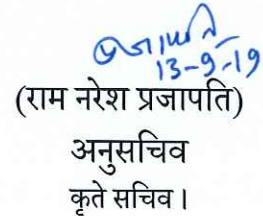 प्रजापति
13-9-19
(राम नरेश प्रजापति)
अनुसचिव
कृते सचिव।